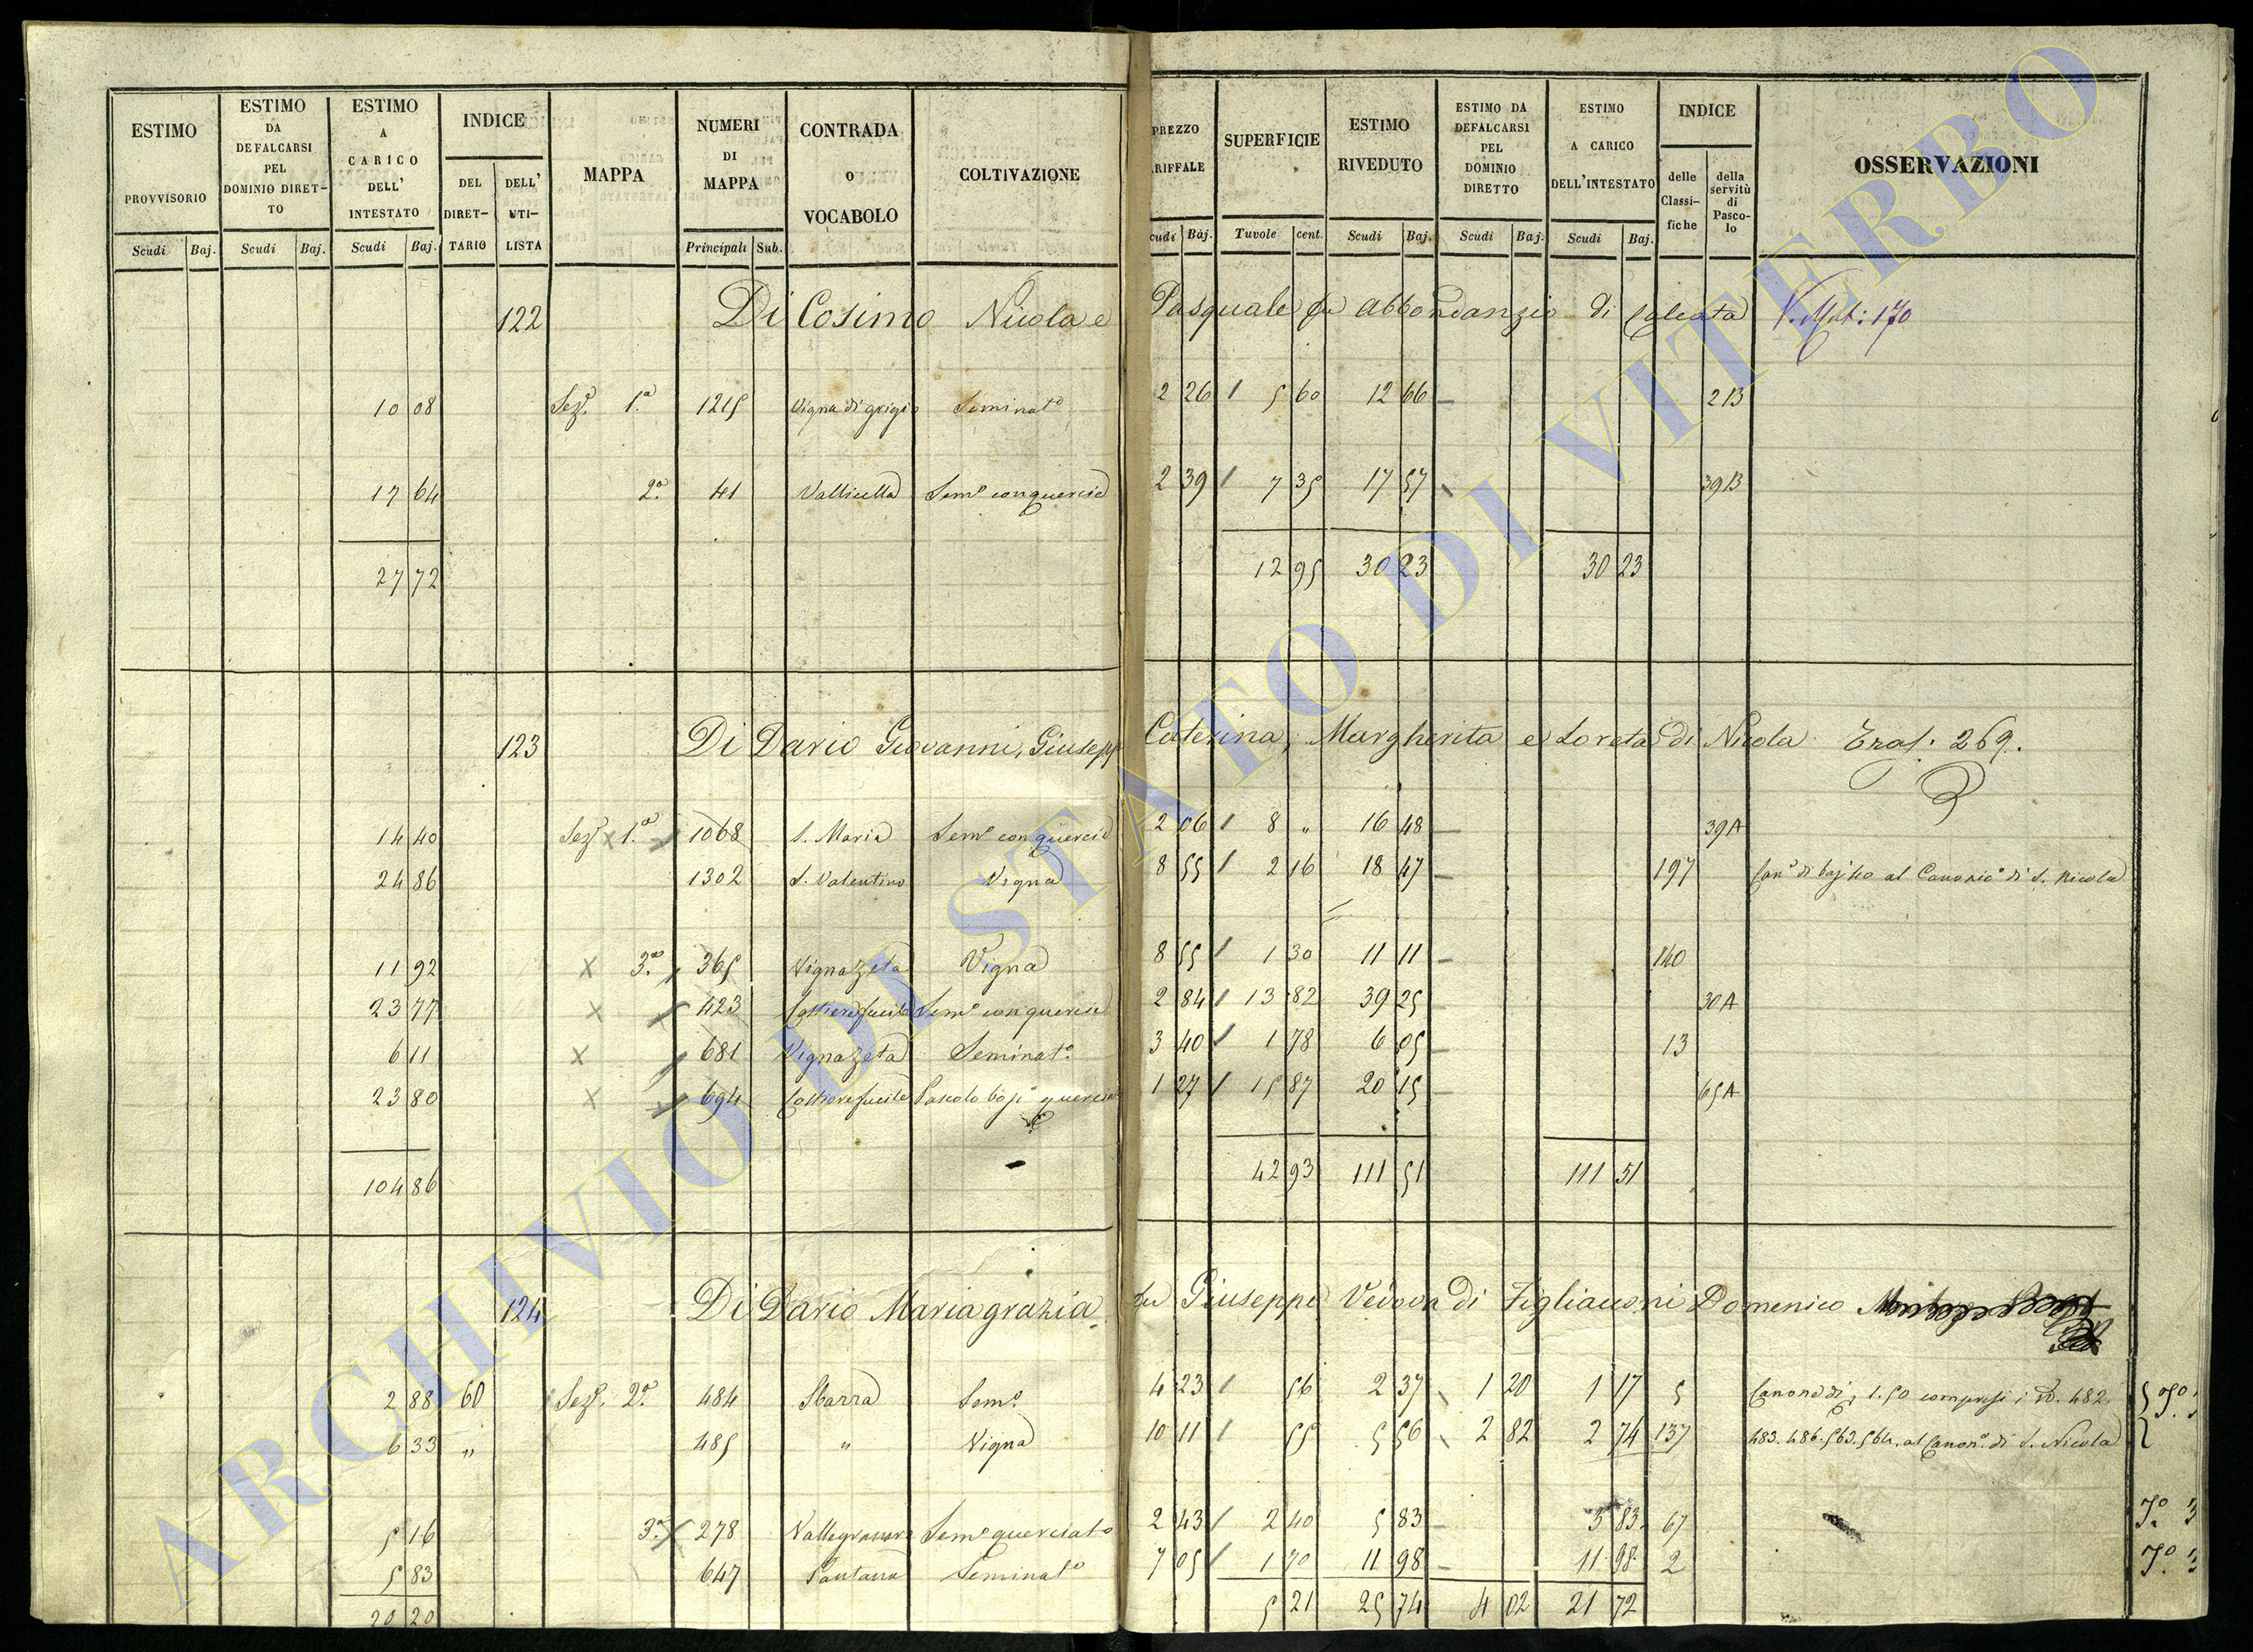 ESTIMO PROVVISORIO Scudi Baj.
ESTIMO DA DEFALCARSI PEL DOMINIO DIRET-TO Scudi Baj.
ESTIMO A CARICO DELL' INTESTATO Scudi Baj.
INDICE DEL DIRET-TARIO DELL' UTI-LISTA
MAPPA
NUMERI DI MAPPA Principali Sub.
CONTRADA O VOCABOLO
COLTIVAZIONE
PREZZO RIFFALE cudi Baj.
SUPERFICIE Tuvole cent.
ESTIMO RIVEDUTO Scudi Baj.
ESTIMO DA DEFALCARSI PEL DOMINIO DIRETTO Scudi Baj.
ESTIMO A CARICO DELL'INTESTATO Scudi Baj.
INDICE delle Classi-fiche della servitù di Pasco-lo
OSSERVAZIONI
122 Di Cosimo Nicola e Pasquale fu Abbondanzio di 170
10 08 Sez.e 1.a 1215 Vigna di grigio Seminato 2 26 5 60 12 66 — 2B
17 64 2.a 41 Vallicella Sem.o con quercie 2 39 7 35 17 57 39B
27 72 12 95 30 23 30 23
123 Di Dario Giovanni, Giusepp Caterina, Margherita e Loreta di Nicola 269.
14 40 Sez.e 1.a 1068 S. Maria Sem.o con quercie 2 06 8 " 16 48 — 39A
24 86 1302 S. Valentino Vigna 8 55 2 16 18 47 — 197 Can.e di baj 40 al Canonic.o di S. Nicola
11 92 x 3.a 365 Vignazeta Vigna 8 55 1 30 11 11 — 140
23 77 x 423 Sem.o con quercie 2 84 13 82 39 25 — 30A
6 11 x 681 Vignazeta Seminat.o 3 40 1 78 6 05 — 13
23 80 x 694 Pascolo quercie 1 27 15 87 20 15 — 65A
104 86 42 93 111 51 111 51
124 Di Dario Mariagrazia fu Giuseppe Vedova di Figliaconi Domenico
2 88 60 Sez.e 2.a 484 Sbarra Sem.o 4 23 56 2 37 1 20 1 17 5 Canone di 1.50 compresi i 482
6 33 " 485 " Vigna 10 11 55 5 56 2 82 2 74 137 483. 486. 563. 564. al Canon.o di S. Nicola
5 16 3.a 278 Sem.o querciato 2 43 2 40 5 83 — 5 83 67
5 83 647 Pantana Seminato 7 05 1 70 11 98 — 11 98 2
20 20 5 21 25 74 4 02 21 72
ARCHIVIO DI STATO DI VITERBO